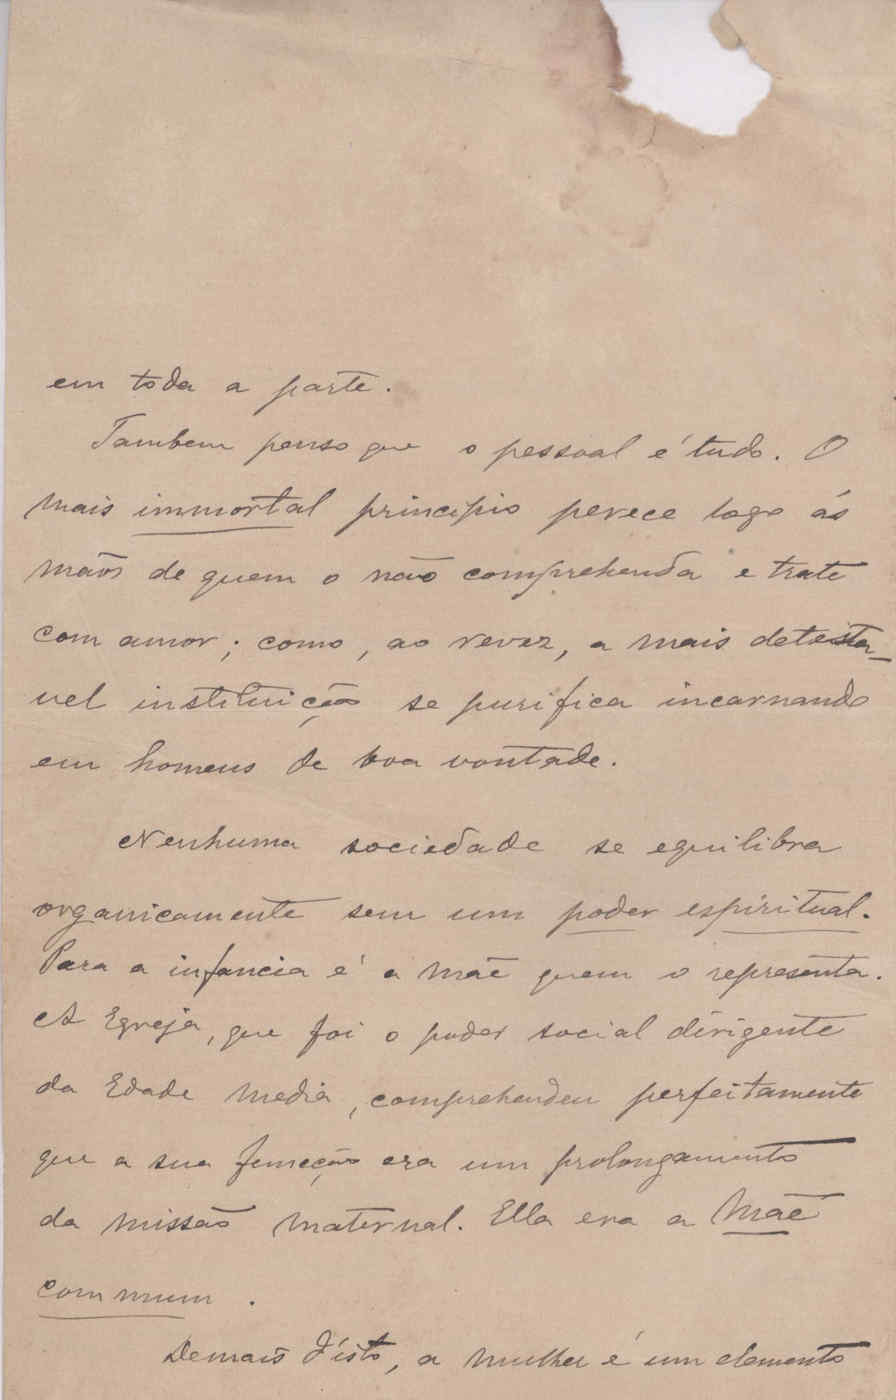 em toda a parte.
Tambem penso que o pessoal é tudo. O
mais immortal principio perece logo ás
mãos de quem o não comprehenda e trate
com amor; como, ao revez, a mais detesta-
vel instituição se purifica incarnando
em homens de boa vontade.
Nenhuma sociedade se equilibra
organicamente sem um poder espiritual.
Para a infancia é a mãe quem o representa.
A Egreja, que foi o poder social dirigente
da Edade media, comprehendeu perfeitamente
que a sua funcção era um prolongamento
da missão maternal. Ella era a Mãe
commum.
Demais d'isto, a mulher é um elemento